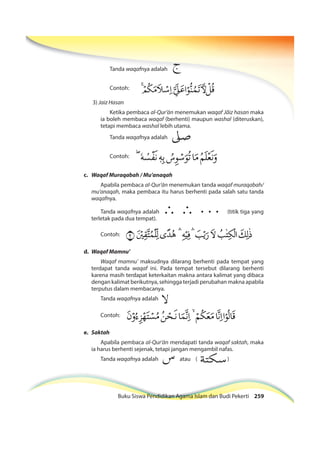 Tanda waqafnya adalah ج
Contoh: قُلْ لَّا تَمُنُّوْا عَلَيَّ اِسْلَامَكُمْ ۚ
3) Jaiz Hasan
Ketika pembaca al-Qur’ān menemukan waqaf Jāiz hasan maka
ia boleh membaca waqaf (berhenti) maupun washal (diteruskan),
tetapi membaca washal lebih utama.
Tanda waqafnya adalah صلى
Contoh: وَنَعْلَمُ مَا تُوَسْوِسُ بِهٖ نَفْسُهٗ ۖ
c. Waqaf Muraqabah / Mu’anaqah
Apabila pembaca al-Qur’ān menemukan tanda waqaf muraqabah/
mu’anaqah, maka pembaca itu harus berhenti pada salah satu tanda
waqafnya.
Tanda waqafnya adalah ∴ ∴ ••• (titik tiga yang
terletak pada dua tempat).
Contoh: ذٰلِكَ الْكِتٰبُ لَا رَيْبَ ۛ فِيْهِ ۛ هُدًى لِّلْمُتَّقِيْنَ ٢
d. Waqaf Mamnu’
Waqaf mamnu’ maksudnya dilarang berhenti pada tempat yang
terdapat tanda waqaf ini. Pada tempat tersebut dilarang berhenti
karena masih terdapat keterkaitan makna antara kalimat yang dibaca
dengan kalimat berikutnya, sehingga terjadi perubahan makna apabila
terputus dalam membacanya.
Tanda waqafnya adalah لا
Contoh: قَالُوْٓا اِنَّا مَعَكُمْ ۙ اِنَّمَا نَحْنُ مُسْتَهْزِءُوْنَ
e. Saktah
Apabila pembaca al-Qur’ān mendapati tanda waqaf saktah, maka
ia harus berhenti sejenak, tetapi jangan mengambil nafas.
Tanda waqafnya adalah س atau ( سكتة )
Buku Siswa Pendidikan Agama Islam dan Budi Pekerti 259